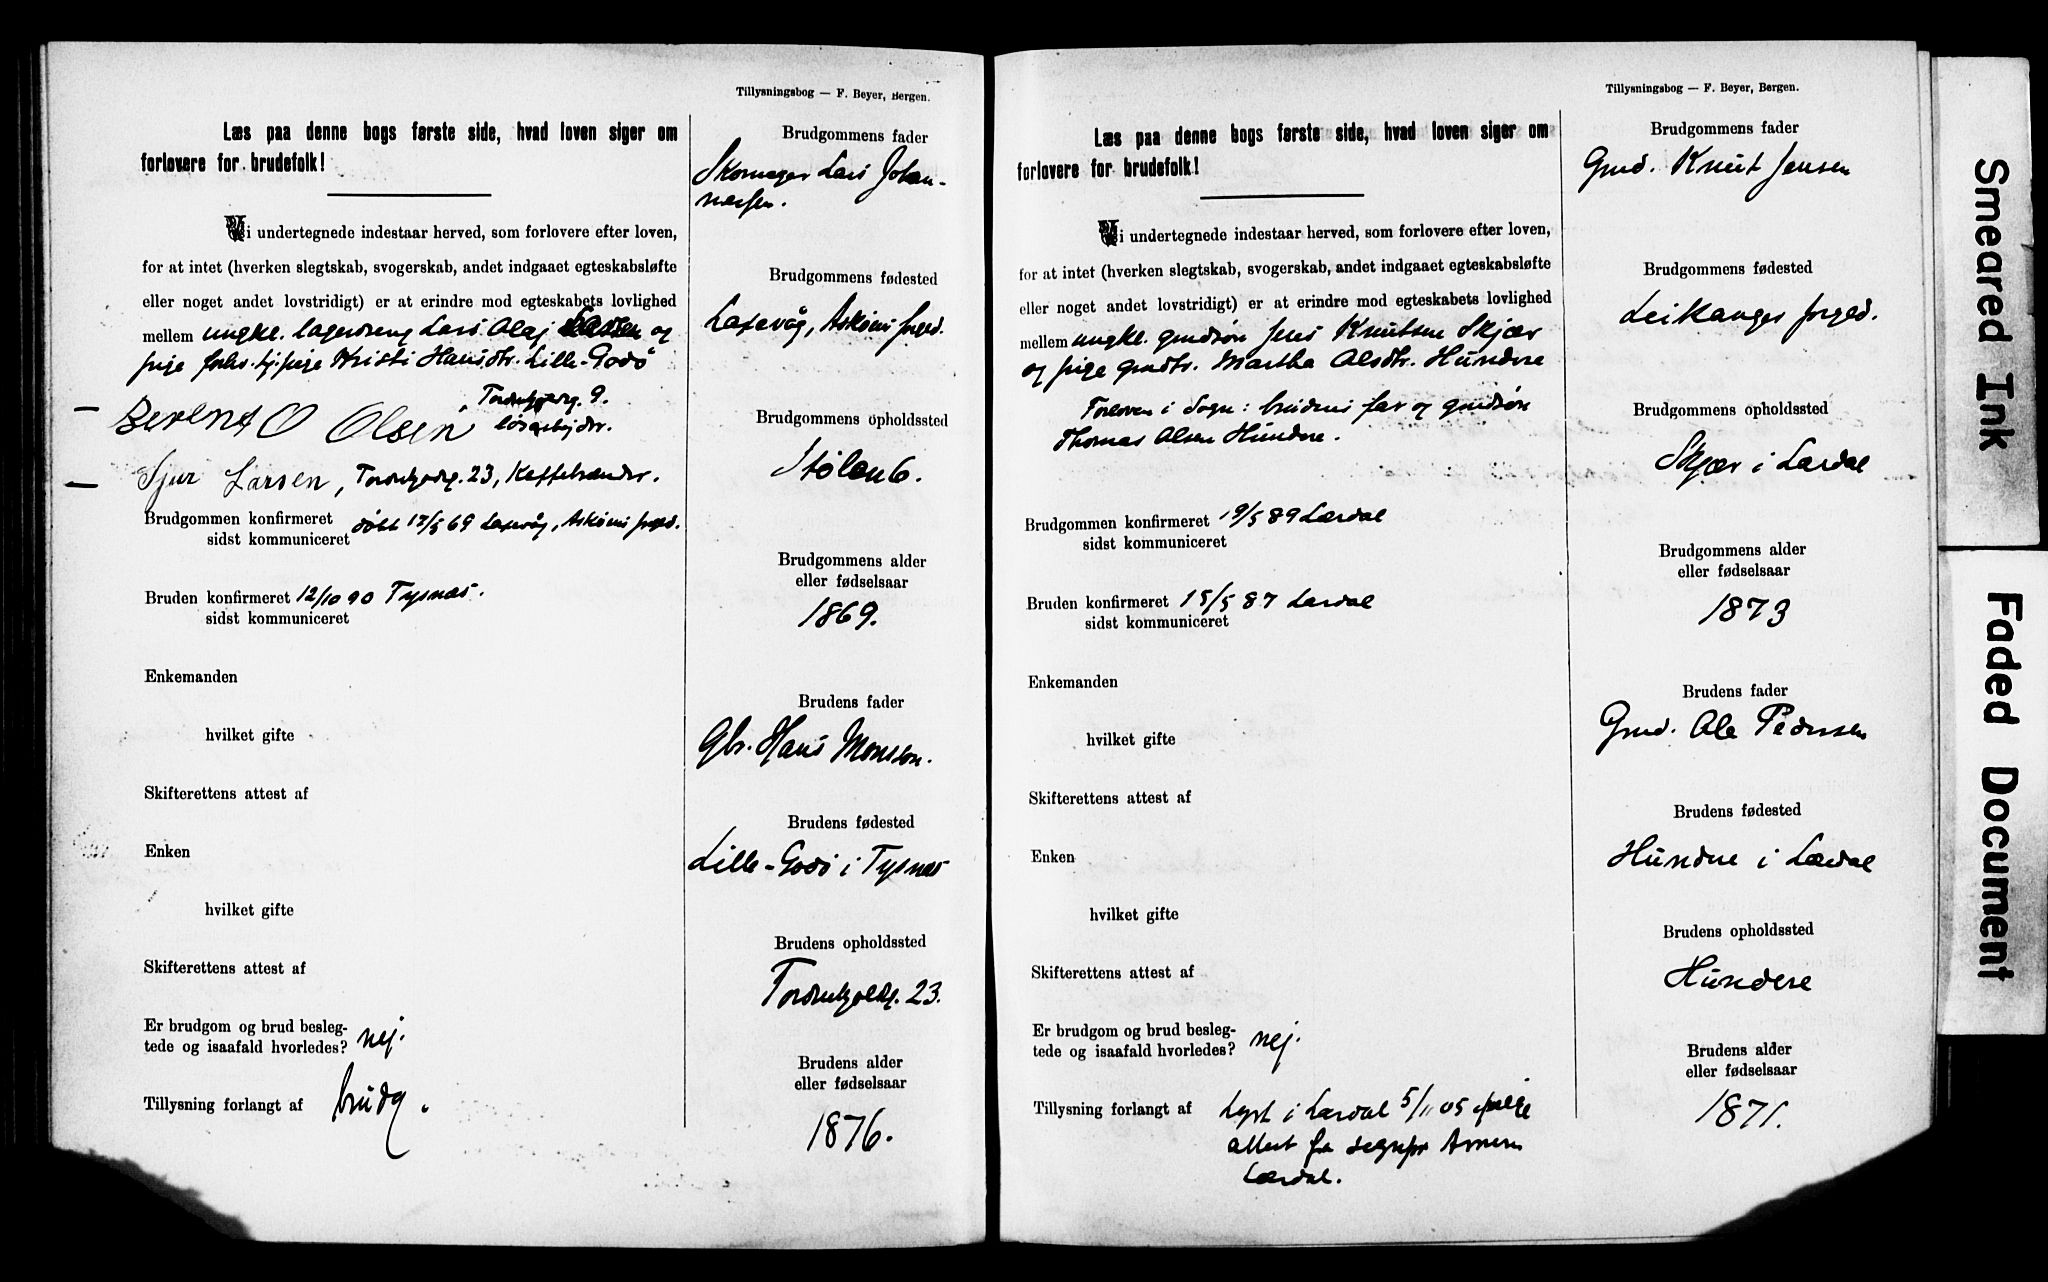 Tillysningsbog — F. Beyer, Bergen.
Læs paa denne bogs første side, hvad loven siger om
forlovere for brudefolk!
Vi undertegnede indestaar herved, som forlovere efter loven,
for at intet (hverken slegtskab, svogerskab, andet indgaaet egteskabsløfte
eller noget andet lovstridigt) er at erindre mod egteskabets lovlighed
mellem ungke. lagerdreng Lars Olaj og
pige forhv. tj.pige Kristi Hansdtr. Lille-Godø
Berent O Olsen, Tordenskjoldsg. 9.
løsarbejder.
Sjur Larsen, Tordenskjoldsg. 23, Kaffebrænder.
Brudgommen konfirmeret døbt 17/5 69 Laxevåg, Askøens prgjd.
sidst kommuniceret
Bruden konfirmeret 12/10 90 Tysnæs.
sidst kommuniceret
Enkemanden
hvilket gifte
Skifterettens attest af
Enken
hvilket gifte
Skifterettens attest af
Er brudgom og brud besleg-
tede og isaafald hvorledes? nej.
Tillysning forlangt af brudg.
Brudgommens fader
Skomager Lars Johan-
nessen.
Brudgommens fødested
Laxevåg, Askøens prgjd.
Brudgommens opholdssted
Stølen 6.
Brudgommens alder
eller fødselsaar
1869.
Brudens fader
Gbr. Hans Monsson.
Brudens fødested
Lille-Godø i Tysnæs
Brudens opholdssted
Tordenskjoldsg. 23.
Brudens alder
eller fødselsaar
1876.
Tillysningsbog — F. Beyer, Bergen.
Læs paa denne bogs første side, hvad loven siger om
forlovere for brudefolk!
Vi undertegnede indestaar herved, som forlovere efter loven,
for at intet (hverken slegtskab, svogerskab, andet indgaaet egteskabsløfte
eller noget andet lovstridigt) er at erindre mod egteskabets lovlighed
mellem ungke. gmdsøn Jens Knutsen Skjær
og pige gmdtr. Martha Olsdtr. Hundere
Forlovere i Sogn: brudens far og gmdsøn
Thomas Olsen Hundere.
Brudgommen konfirmeret 19/5 89 Lærdal
sidst kommuniceret
Bruden konfirmeret 15/5 87 Lærdal
sidst kommuniceret
Enkemanden
hvilket gifte
Skifterettens attest af
Enken
hvilket gifte
Skifterettens attest af
Er brudgom og brud besleg-
tede og isaafald hvorledes? nej.
Tillysning forlangt af Lyst i Lærdal 5/11 05 ifølge
attest fra sognepr
Lærdal.
Brudgommens fader
Gmd. Knut Jensen
Brudgommens fødested
Leikanger prgjd.
Brudgommens opholdssted
Skjær i Lærdal
Brudgommens alder
eller fødselsaar
1873
Brudens fader
Gmd. Ole Pedersen
Brudens fødested
Hundere i Lærdal
Brudens opholdssted
Hundere
Brudens alder
eller fødselsaar
1871.
Smeared Ink
Faded Document